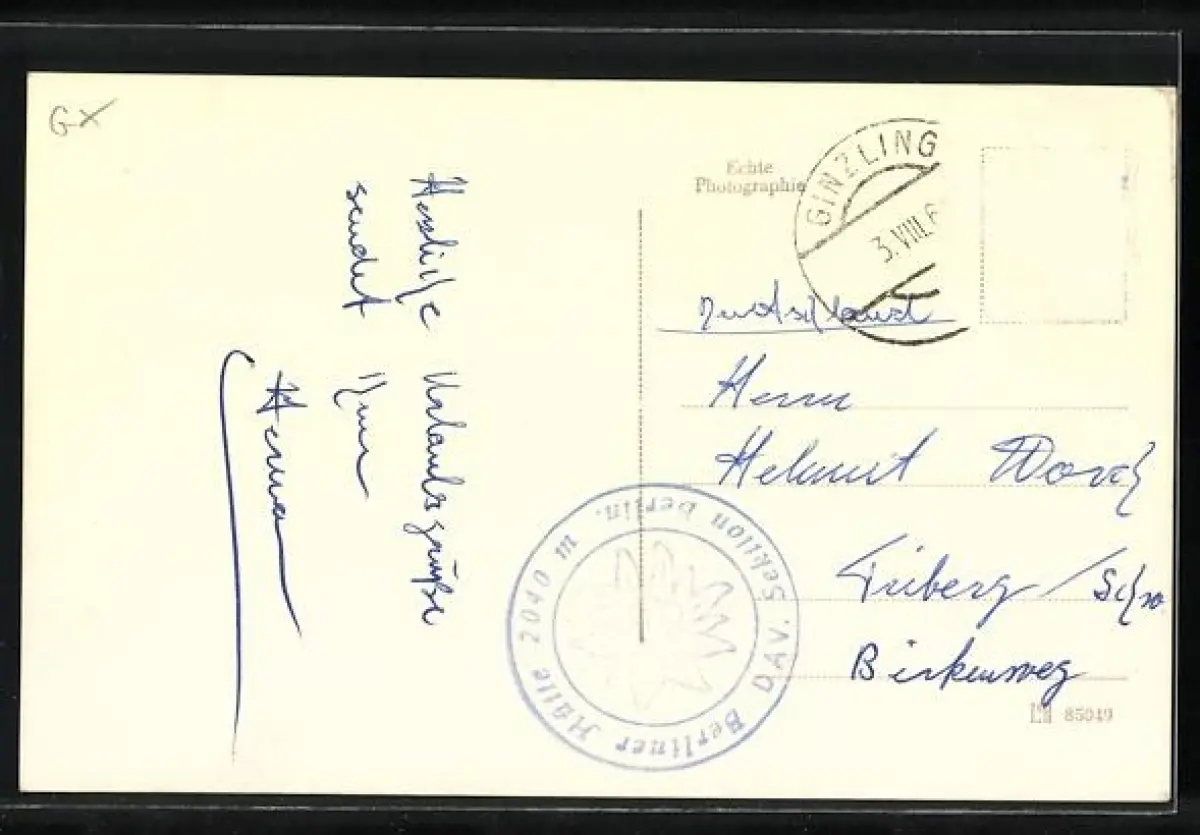 GX
Herzliche Urlaubsgrüße
sendet Ihnen
Echte
Photographie
GINZLING
3.VIII.6
Deutschland
Herrn
Helmut
Triberg/Schw
Birkenweg
85049
DAV. Sektion Berlin.
Berliner Hütte 2040 m